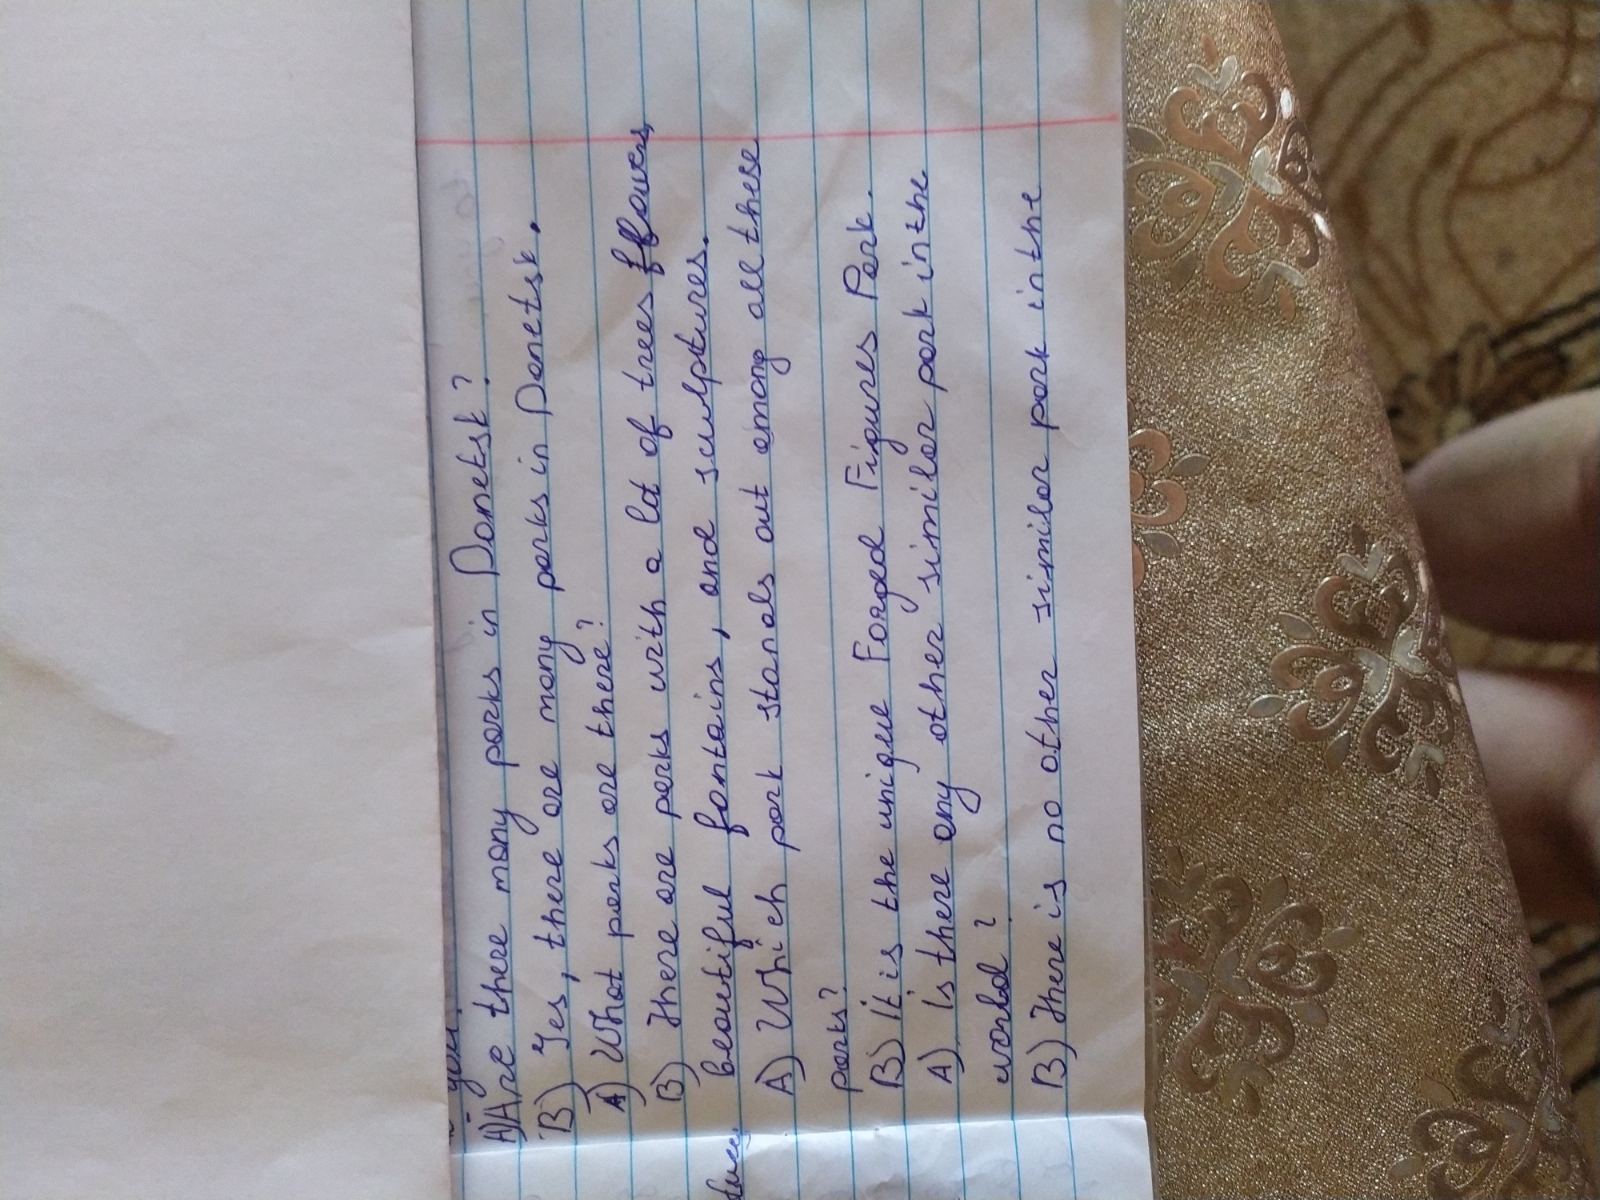 you.
A) Are there many parks in Donetsk?
B) Yes, there are many parks in Donetsk.
A) What parks are there?
B) There are parks with a lot of trees flowers,
beautiful fontains, and sculptures.
A) Which park stands out among all these
parks?
B) It is the unique Forged Figures Park.
A) Is there any other similar park in the
world?
B) There is no other similar park in the